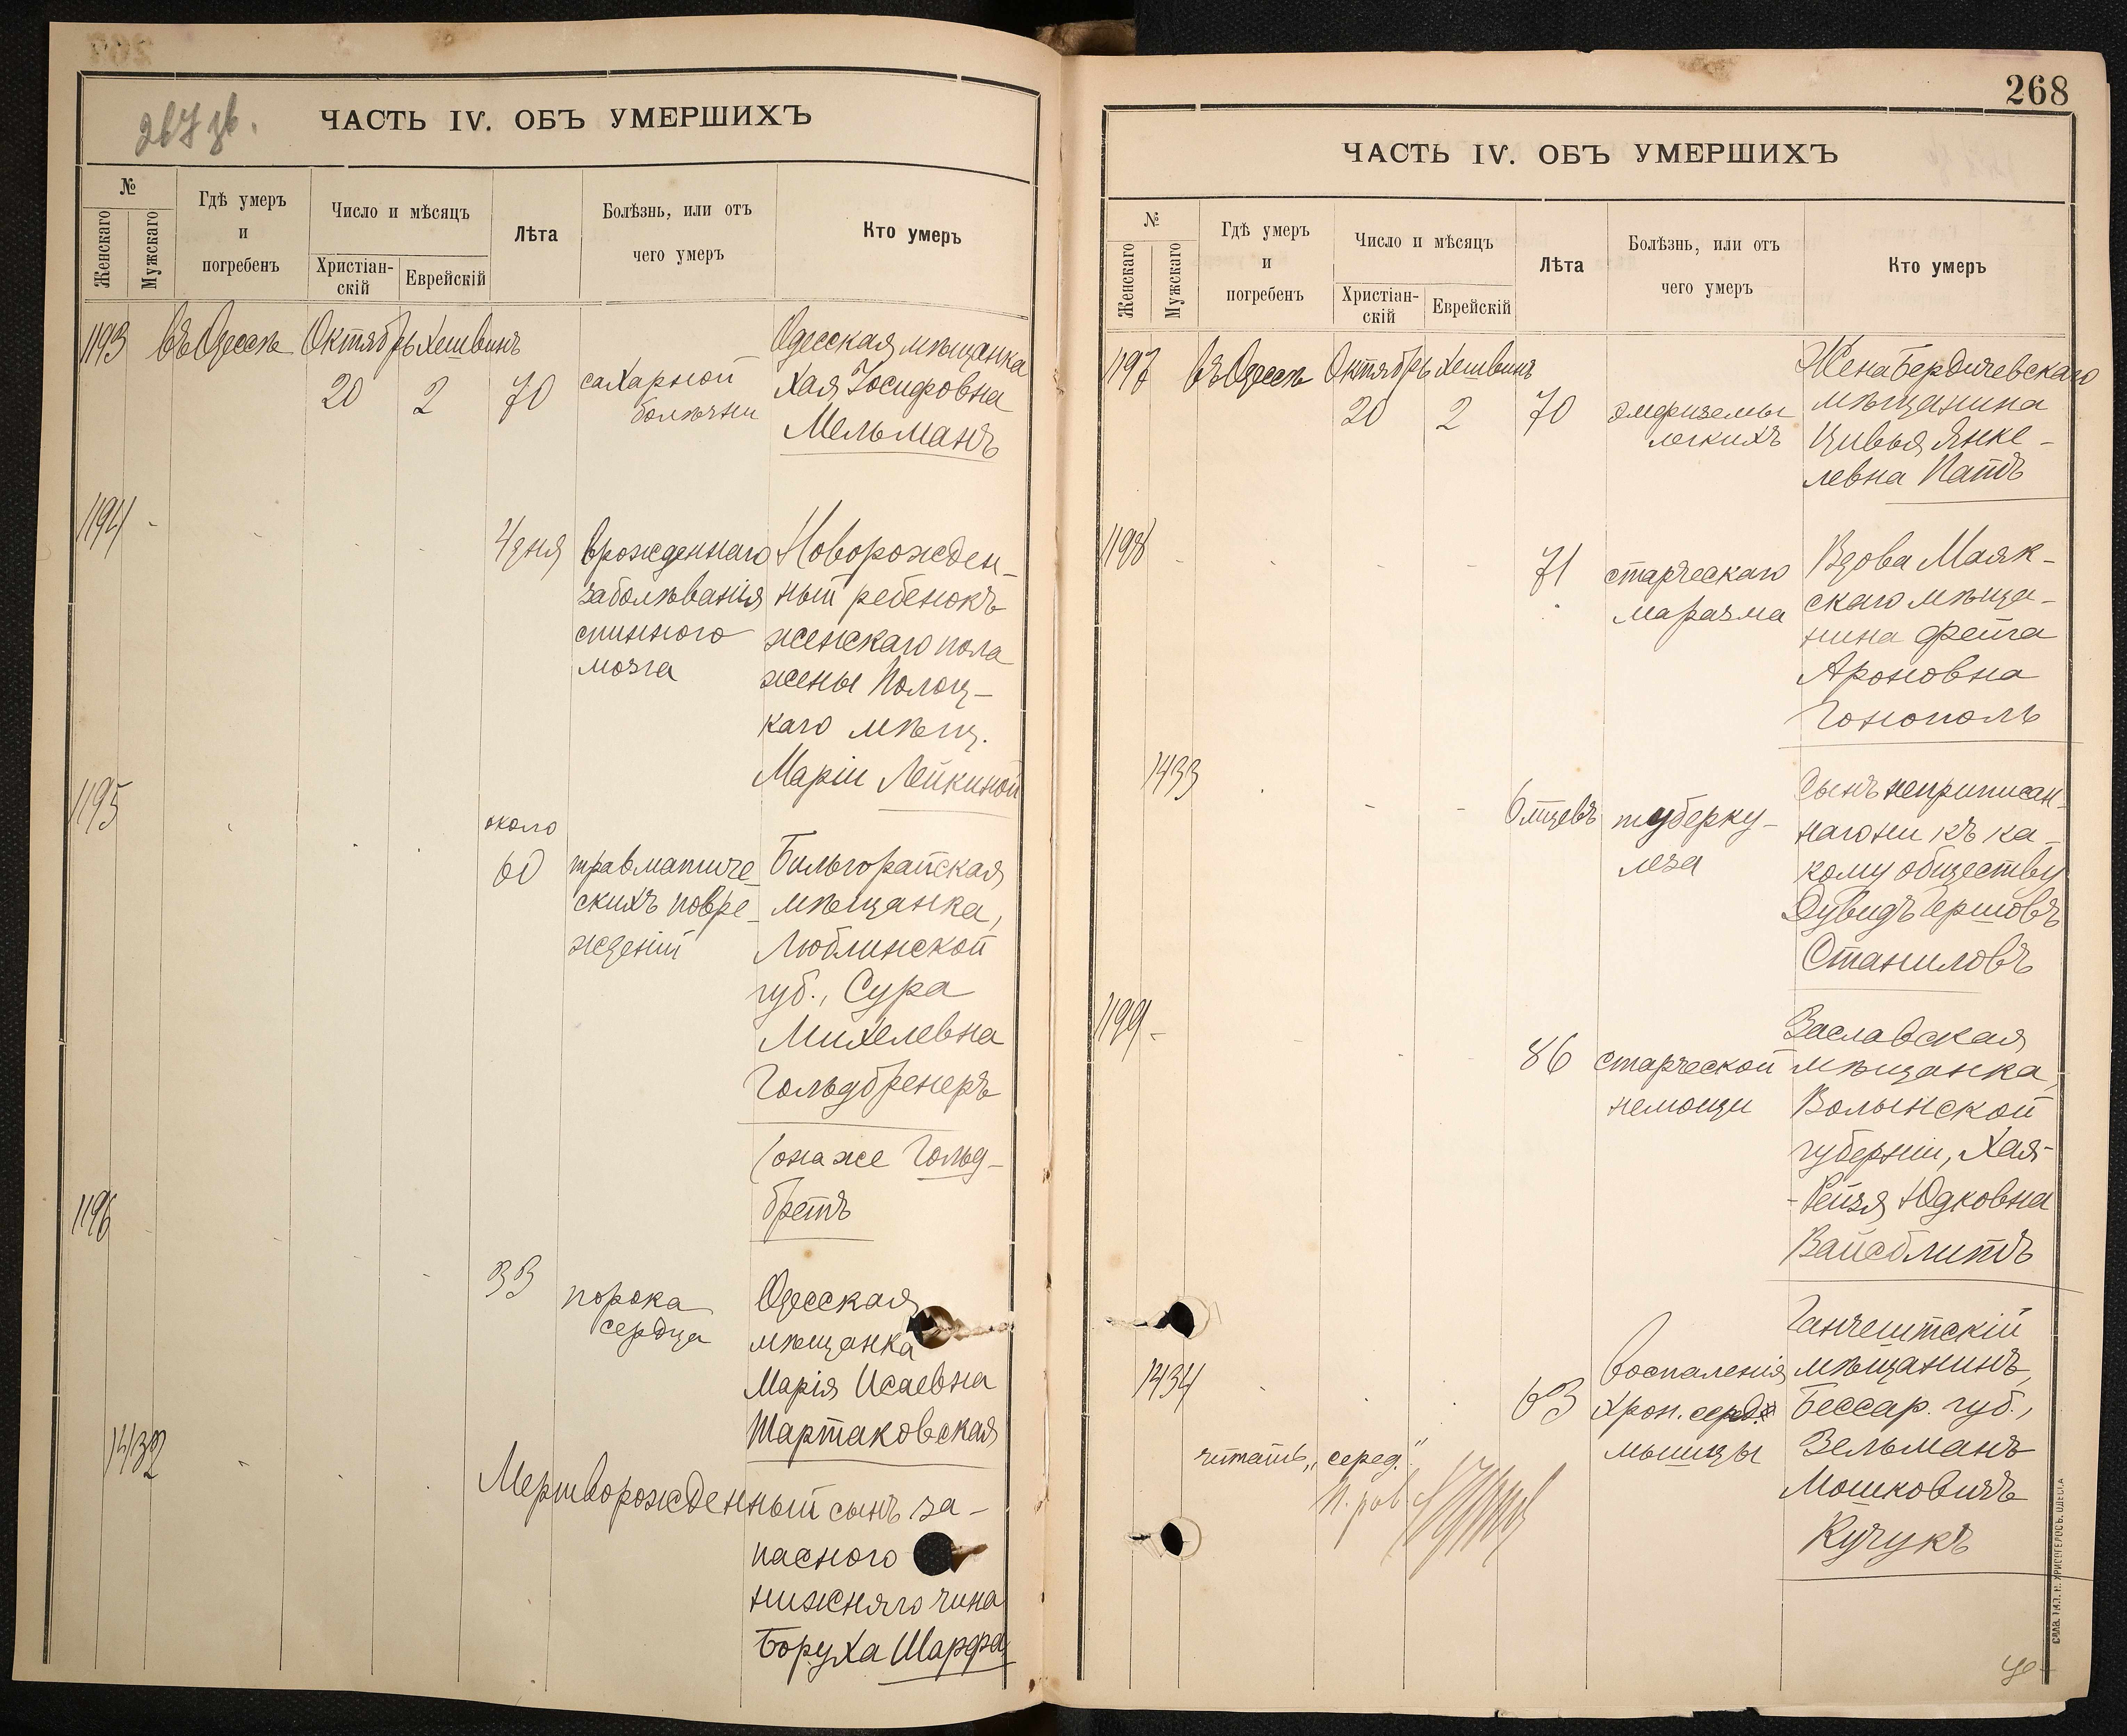 267 зв.
ЧАСТЬ IV. ОБЪ УМЕРШИХЪ
№
Женскаго
Мужскаго
Гдѣ умеръ
и
погребенъ
Число и мѣсяцъ
Христіан-
скій
Еврейскій
Лѣта
Болѣзнь, или отъ
чего умеръ
Кто умеръ
1193 въ Одессѣ Октябрь Хешвинъ
20 2 70
сахарной
болѣзни
Одесская мѣщанка
Хая Іосифовна
Мельманъ
1194
4 дня
врожденнаго
заболѣванія
спинного
мозга
Новорожден-
ный ребенокъ
женскаго пола
жены Полоц-
каго мѣщ.
Маріи Лейкиной
1195
около
60
травматиче-
скихъ повре-
жденій
Бильгорайская
мѣщанка,
Люблинской
губ., Сура
Михелевна
Гольдбренеръ
(она же Гольд-
бретъ
1196
33
порока
сердца
Одесская
мѣщанка
Марія Исаевна
Шартаковская
1432
Мертворожденный сынъ за-
паснoго
нижняго чина
Боруха Шарфа
268
ЧАСТЬ IV. ОБЪ УМЕРШИХЪ
№
Женскаго
Мужскаго
Гдѣ умеръ
и
погребенъ
Число и мѣсяцъ
Христіан-
скій
Еврейскій
Лѣта
Болѣзнь, или отъ
чего умеръ
Кто умеръ
1197 въ Одессѣ Октябрь Хешвинъ
20 2 70
эмфиземы
легкихъ
Жена Бердичевскаго
мѣщанина
Цивья Янке-
левна Патъ
1198
71
старческаго
маразма
Вдова Маяк-
скаго мѣща-
нина Фейга
Ароновна
Гонополь
1433
6 мцевъ
туберку-
леза
Сынъ неприписан-
наго ни къ ка-
кому обществу
Дувидъ Гершовъ
Станиловъ
1199
86
старческой
немощи
Заславская
мѣщанка,
Волынской
губерніи, Хая-
-Рейзя Юдковна
Вайсблитъ
1434
63
воспаленія
хрон. серед.
мышцы
Ганчештскій
мѣщанинъ,
Бессар. губ.,
Зельманъ
Мошковичъ
Кучукъ
читать „серед."
СЛАВ. ТИП. Н. ХРИСОГЕЛОСЪ, ОДЕССА